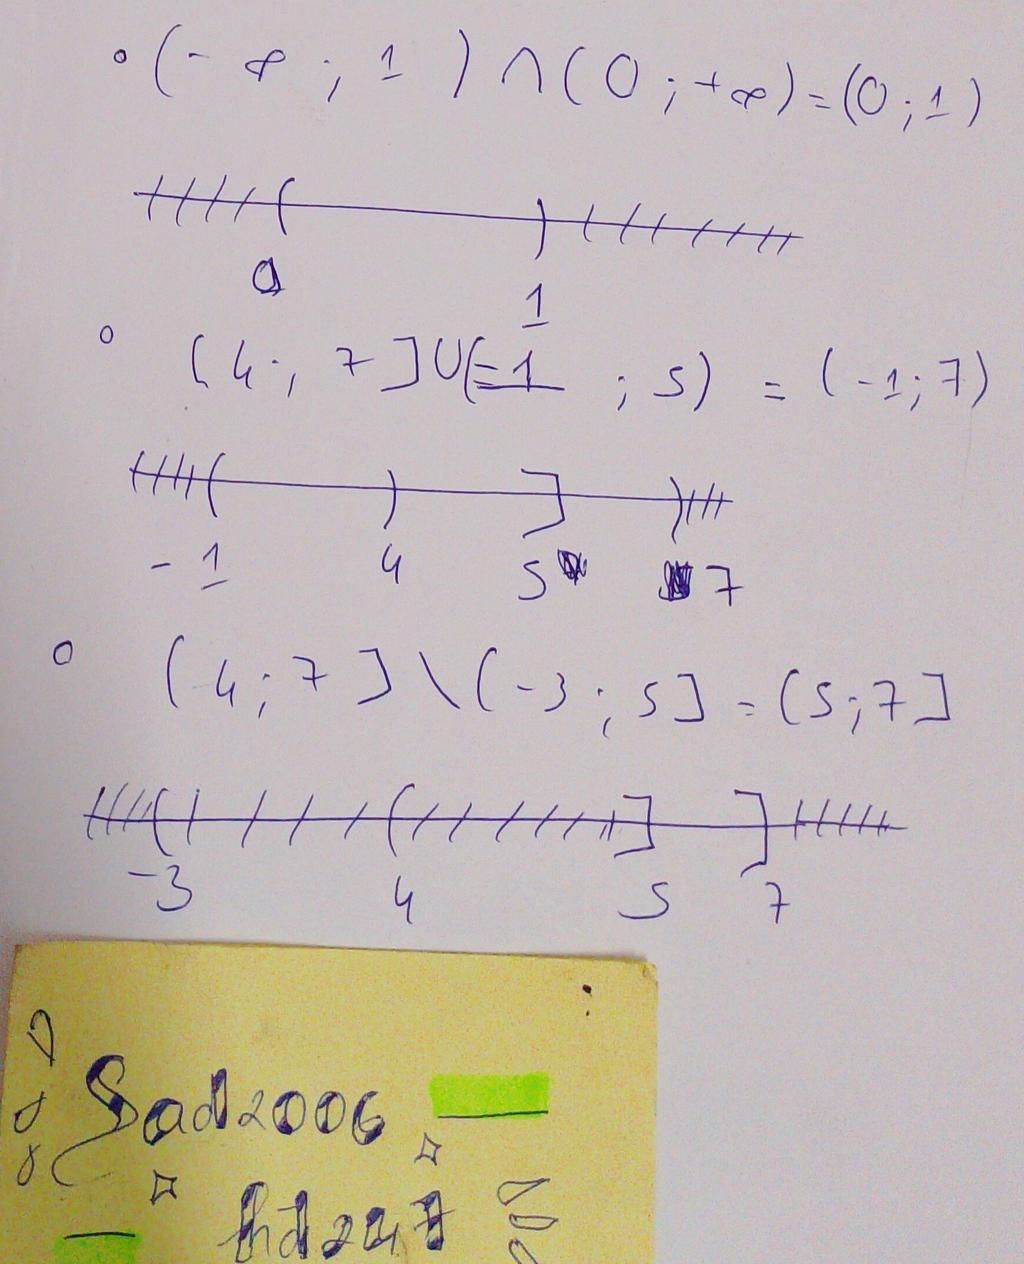 (-∞; 1) ∩ (0; +∞) = (0; 1)
0
1
(4; 7] ∪ (-1; 5) = (-1; 7)
-1 4 5 7
(4; 7] \ (-3; 5] = (5; 7]
-3 4 5 7
Sad2006